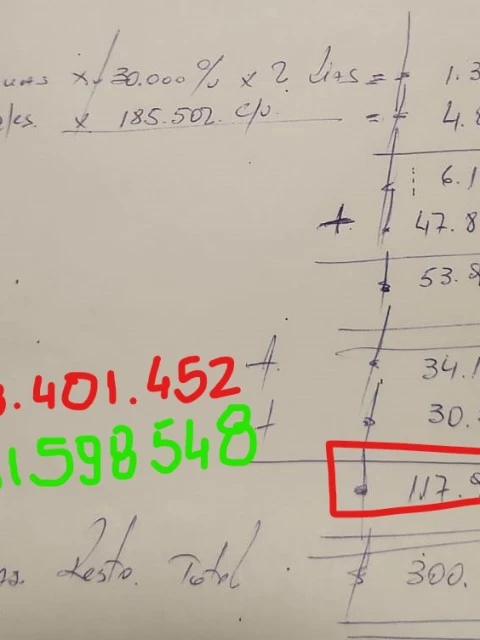 x 30.000 % x 2 días = 1.3
x 185.502. c/u. = 4.8
6.1
+ 47.8
53.
+ 34.1
.401.452
+ 30.
1598548
117.
Resto. Total $ 300.